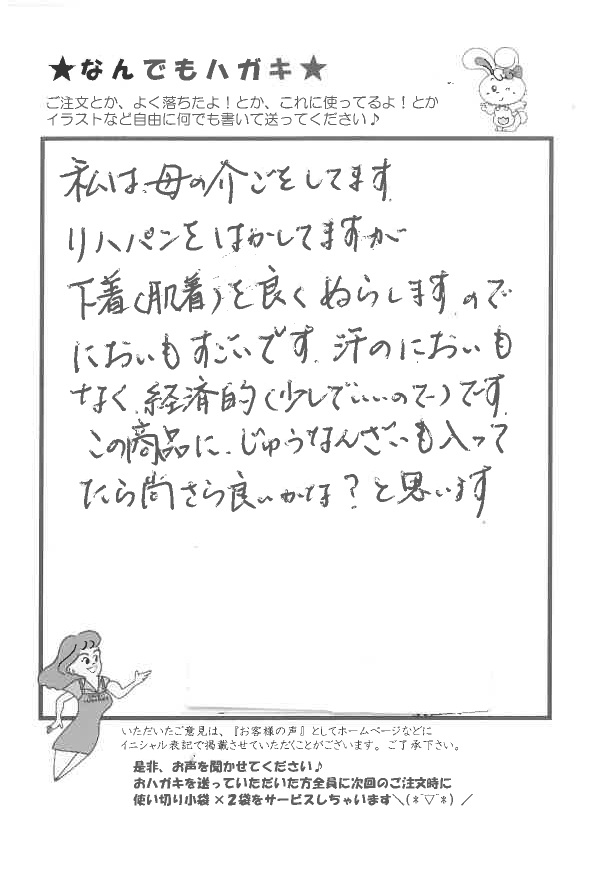 ★なんでもハガキ★
ご注文とか、よく落ちたよ！とか、これに使ってるよ！とか
イラストなど自由に何でも書いて送ってください♪
私は、母の介ごをしてます
リハパンをはかしてますが
下着(肌着)を良くぬらしますので
においもすごいです。汗のにおいも
なく、経済的(少しでいいので)です。
この商品に、じゅうなんざいも入って
たら尚さら良いかな？と思います
いただいたご意見は、『お客様の声』としてホームページなどに
イニシャル表記で掲載させていただくことがございます。ご了承下さい。
是非、お声を聞かせてください♪
おハガキを送っていただいた方全員に次回のご注文時に
使い切り小袋×2袋をサービスしちゃいます＼(*´▽`*)／